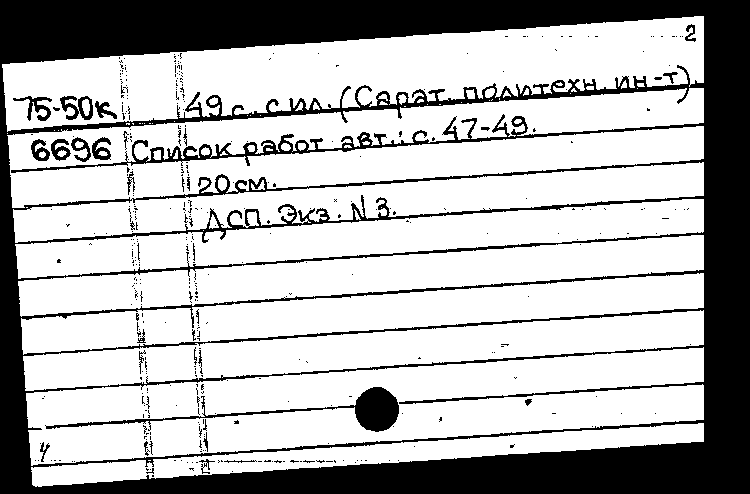 2
75-50к 49 с. с ил. (Сарат. политехн. ин-т).
6696 Список работ авт.: с. 47-49.
20 см.
ДСП. Экз. N 3.
4